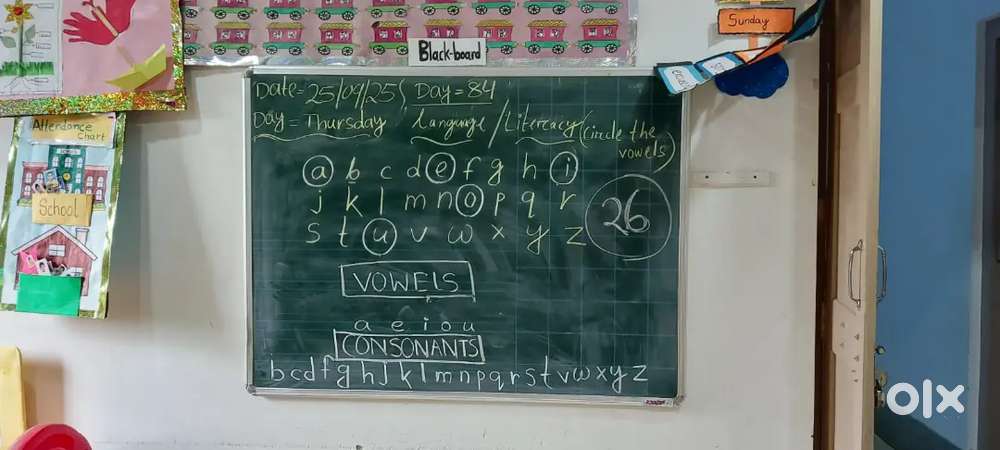 Sunday
Black-board
Date = 25/09/25, Day = 84
Day = Thursday Language / Literacy (Circle the vowels)
a b c d e f g h i
j k l m n o p q r
s t u v w x y z
26
VOWELS
a e i o u
CONSONANTS
b c d f g h j k l m n p q r s t v w x y z
Attendance Chart
School
olx